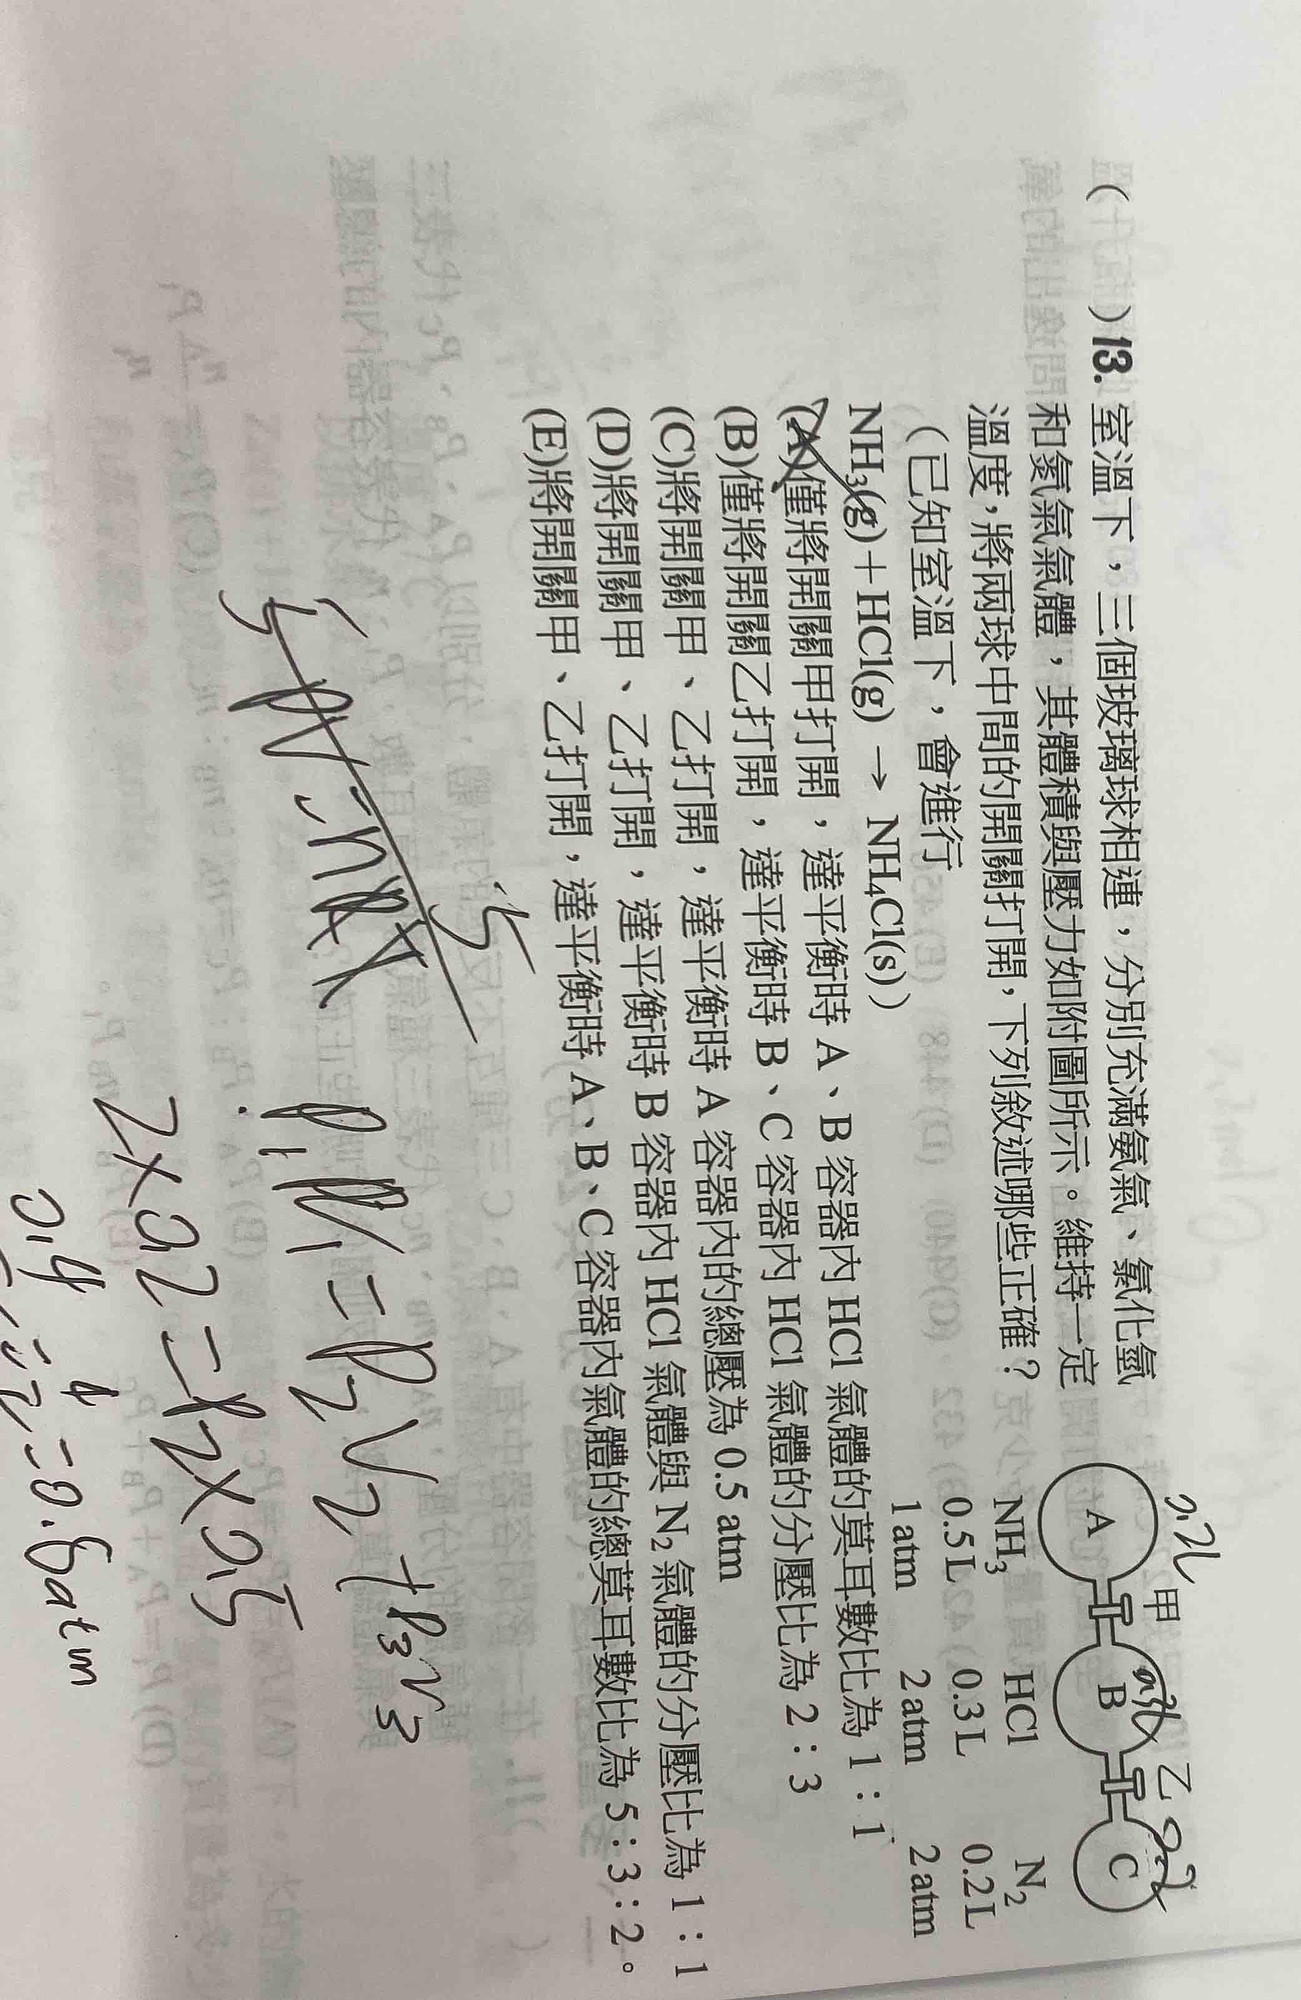 ( )13. 室溫下，三個玻璃球相連，分別充滿氨氣、氯化氫
和氮氣氣體，其體積與壓力如附圖所示。維持一定
溫度，將兩球中間的開關打開，下列敘述哪些正確？
（已知室溫下，會進行
NH₃(g)＋HCl(g) → NH₄Cl(s)）
(A)僅將開關甲打開，達平衡時 A、B 容器內 HCl 氣體的莫耳數比為 1：1
(B)僅將開關乙打開，達平衡時 B、C 容器內 HCl 氣體的分壓比為 2：3
(C)將開關甲、乙打開，達平衡時 A 容器內的總壓為 0.5 atm
(D)將開關甲、乙打開，達平衡時 B 容器內 HCl 氣體與 N₂ 氣體的分壓比為 1：1
(E)將開關甲、乙打開，達平衡時 A、B、C 容器內氣體的總莫耳數比為 5：3：2。
甲 乙
A B C
NH₃ HCl N₂
0.5 L 0.3 L 0.2 L
1 atm 2 atm 2 atm
P₁V₁=P₂V₂+P₃V₃
2×0.2=P2×0.5
0.4
=0.8atm